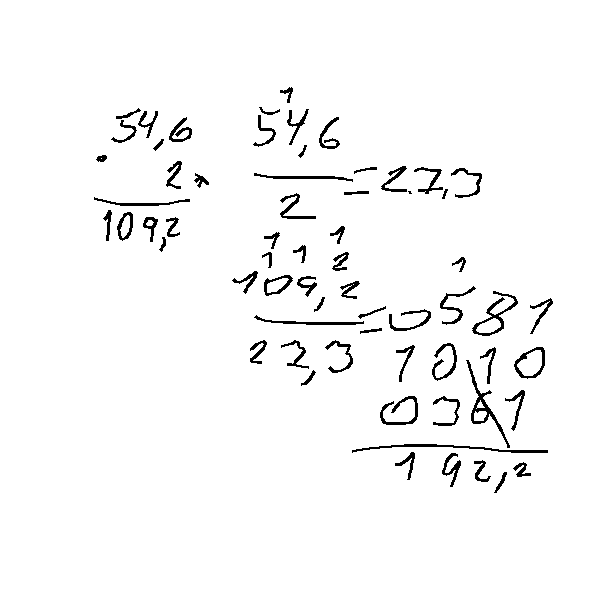 54,6
· 2
109,2
1
54,6
2
=27,3
1 1
1 1 2
109,2
22,3
1
=0581
1010
0361
192,2